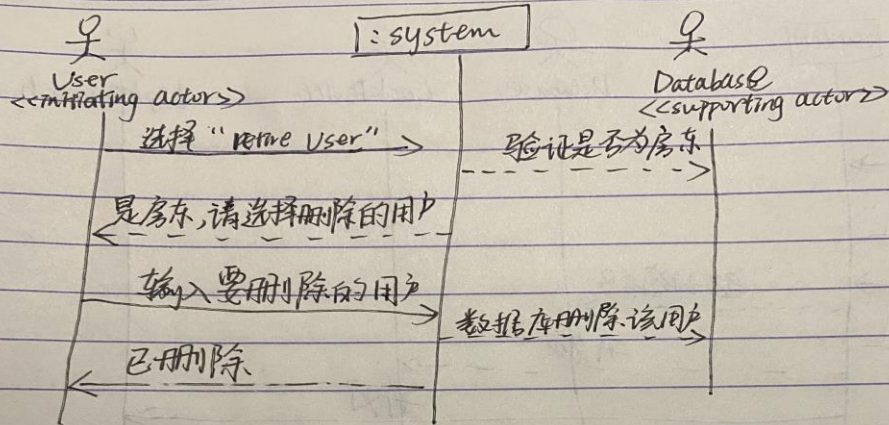 :system
User
<<initiating actor>>
Database
<<supporting actor>>
选择“ User”
验证是否为房东
是房东,请选择删除的用户
输入要删除的用户
数据库删除该用户
已删除